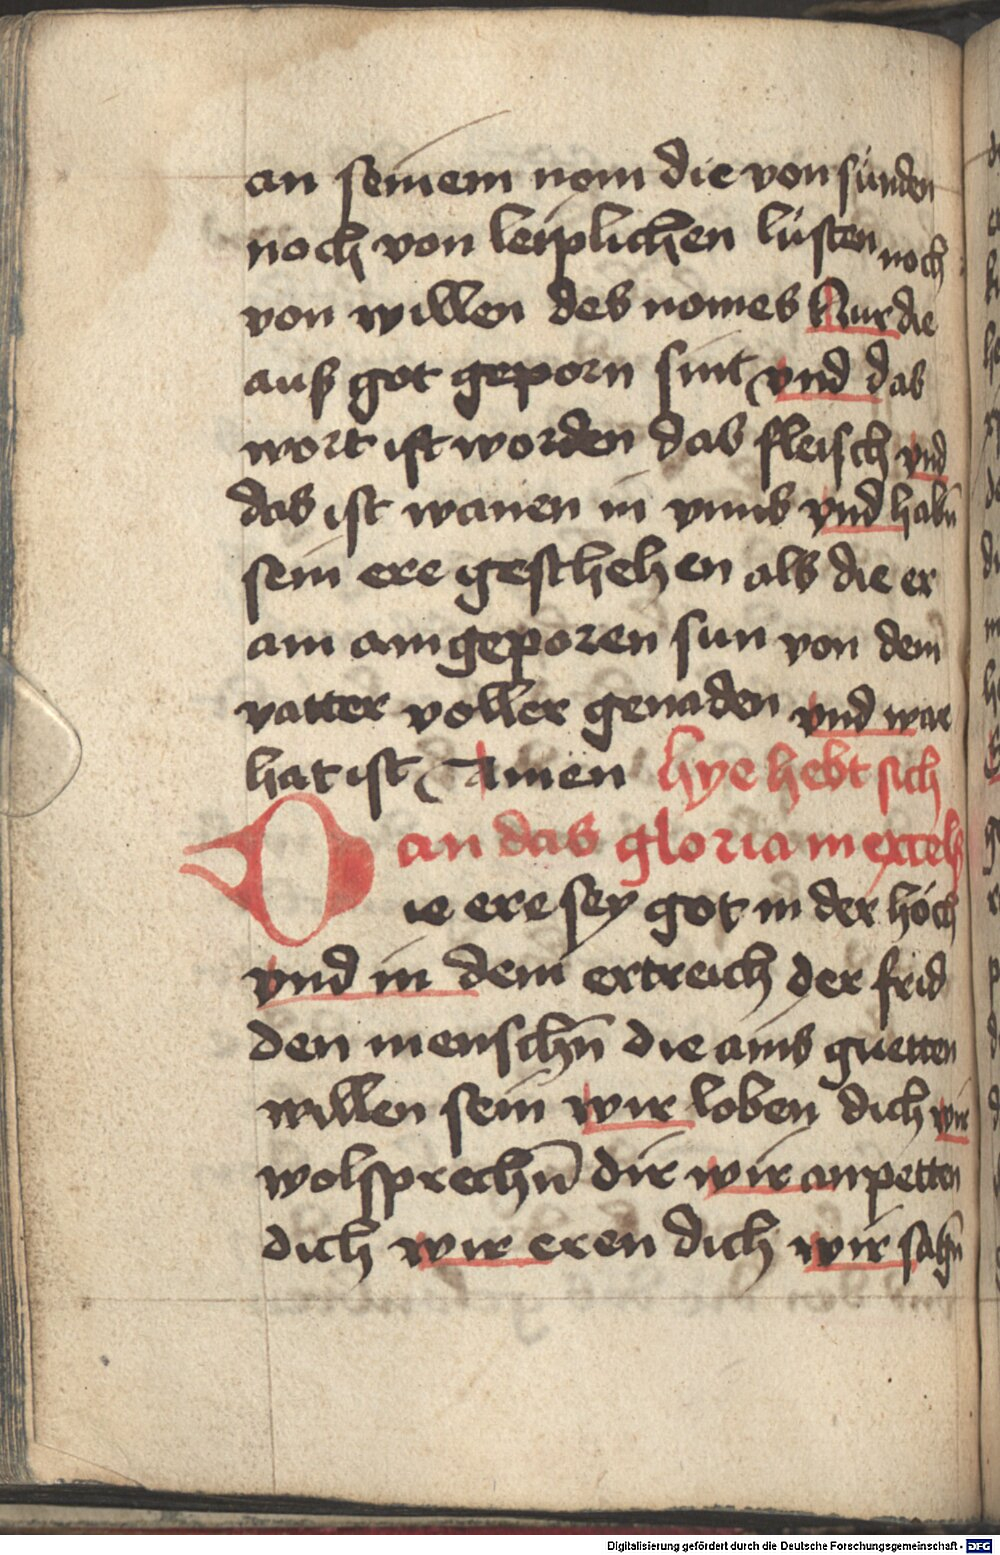 an seinem nom die von sünden
noch von leiplichen lüsten noch
von willen des nomes Nur die
auß got geporn sint vnd das
wort ist worden das fleisch vnd
das ist wanen in vnns vnd habn̄
sein ere geschehen als die er
ain aingeporen sun von dem
vatter voller genaden vnd war
hat ist Amen hye hebt sich
an das gloria in excels
Die ere sey got in der höch
vnd in dem ertreich der frid
den menschn̄ die ains guetten
willen sein wir loben dich wir
wolsprechn̄ dir wir anpetten
dich wir eren dich wir sagn̄
Digitalisierung gefördert durch die Deutsche Forschungsgemeinschaft - DFG